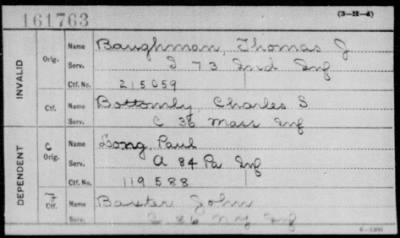 161763
(3-H-4)
INVALID
Orig. Name Baughman, Thomas J
Serv. I 73 Ind Inf
Ctf. No. 215659
Ctf. Name Bottomly, Charles S
Serv. C 36 Mass Inf
DEPENDENT
Orig. Name Long, Paul
Serv. A 84 Pa Inf
Ctf. No. 119588
Ctf. Name Baxter John
Serv. 86 NY Inf